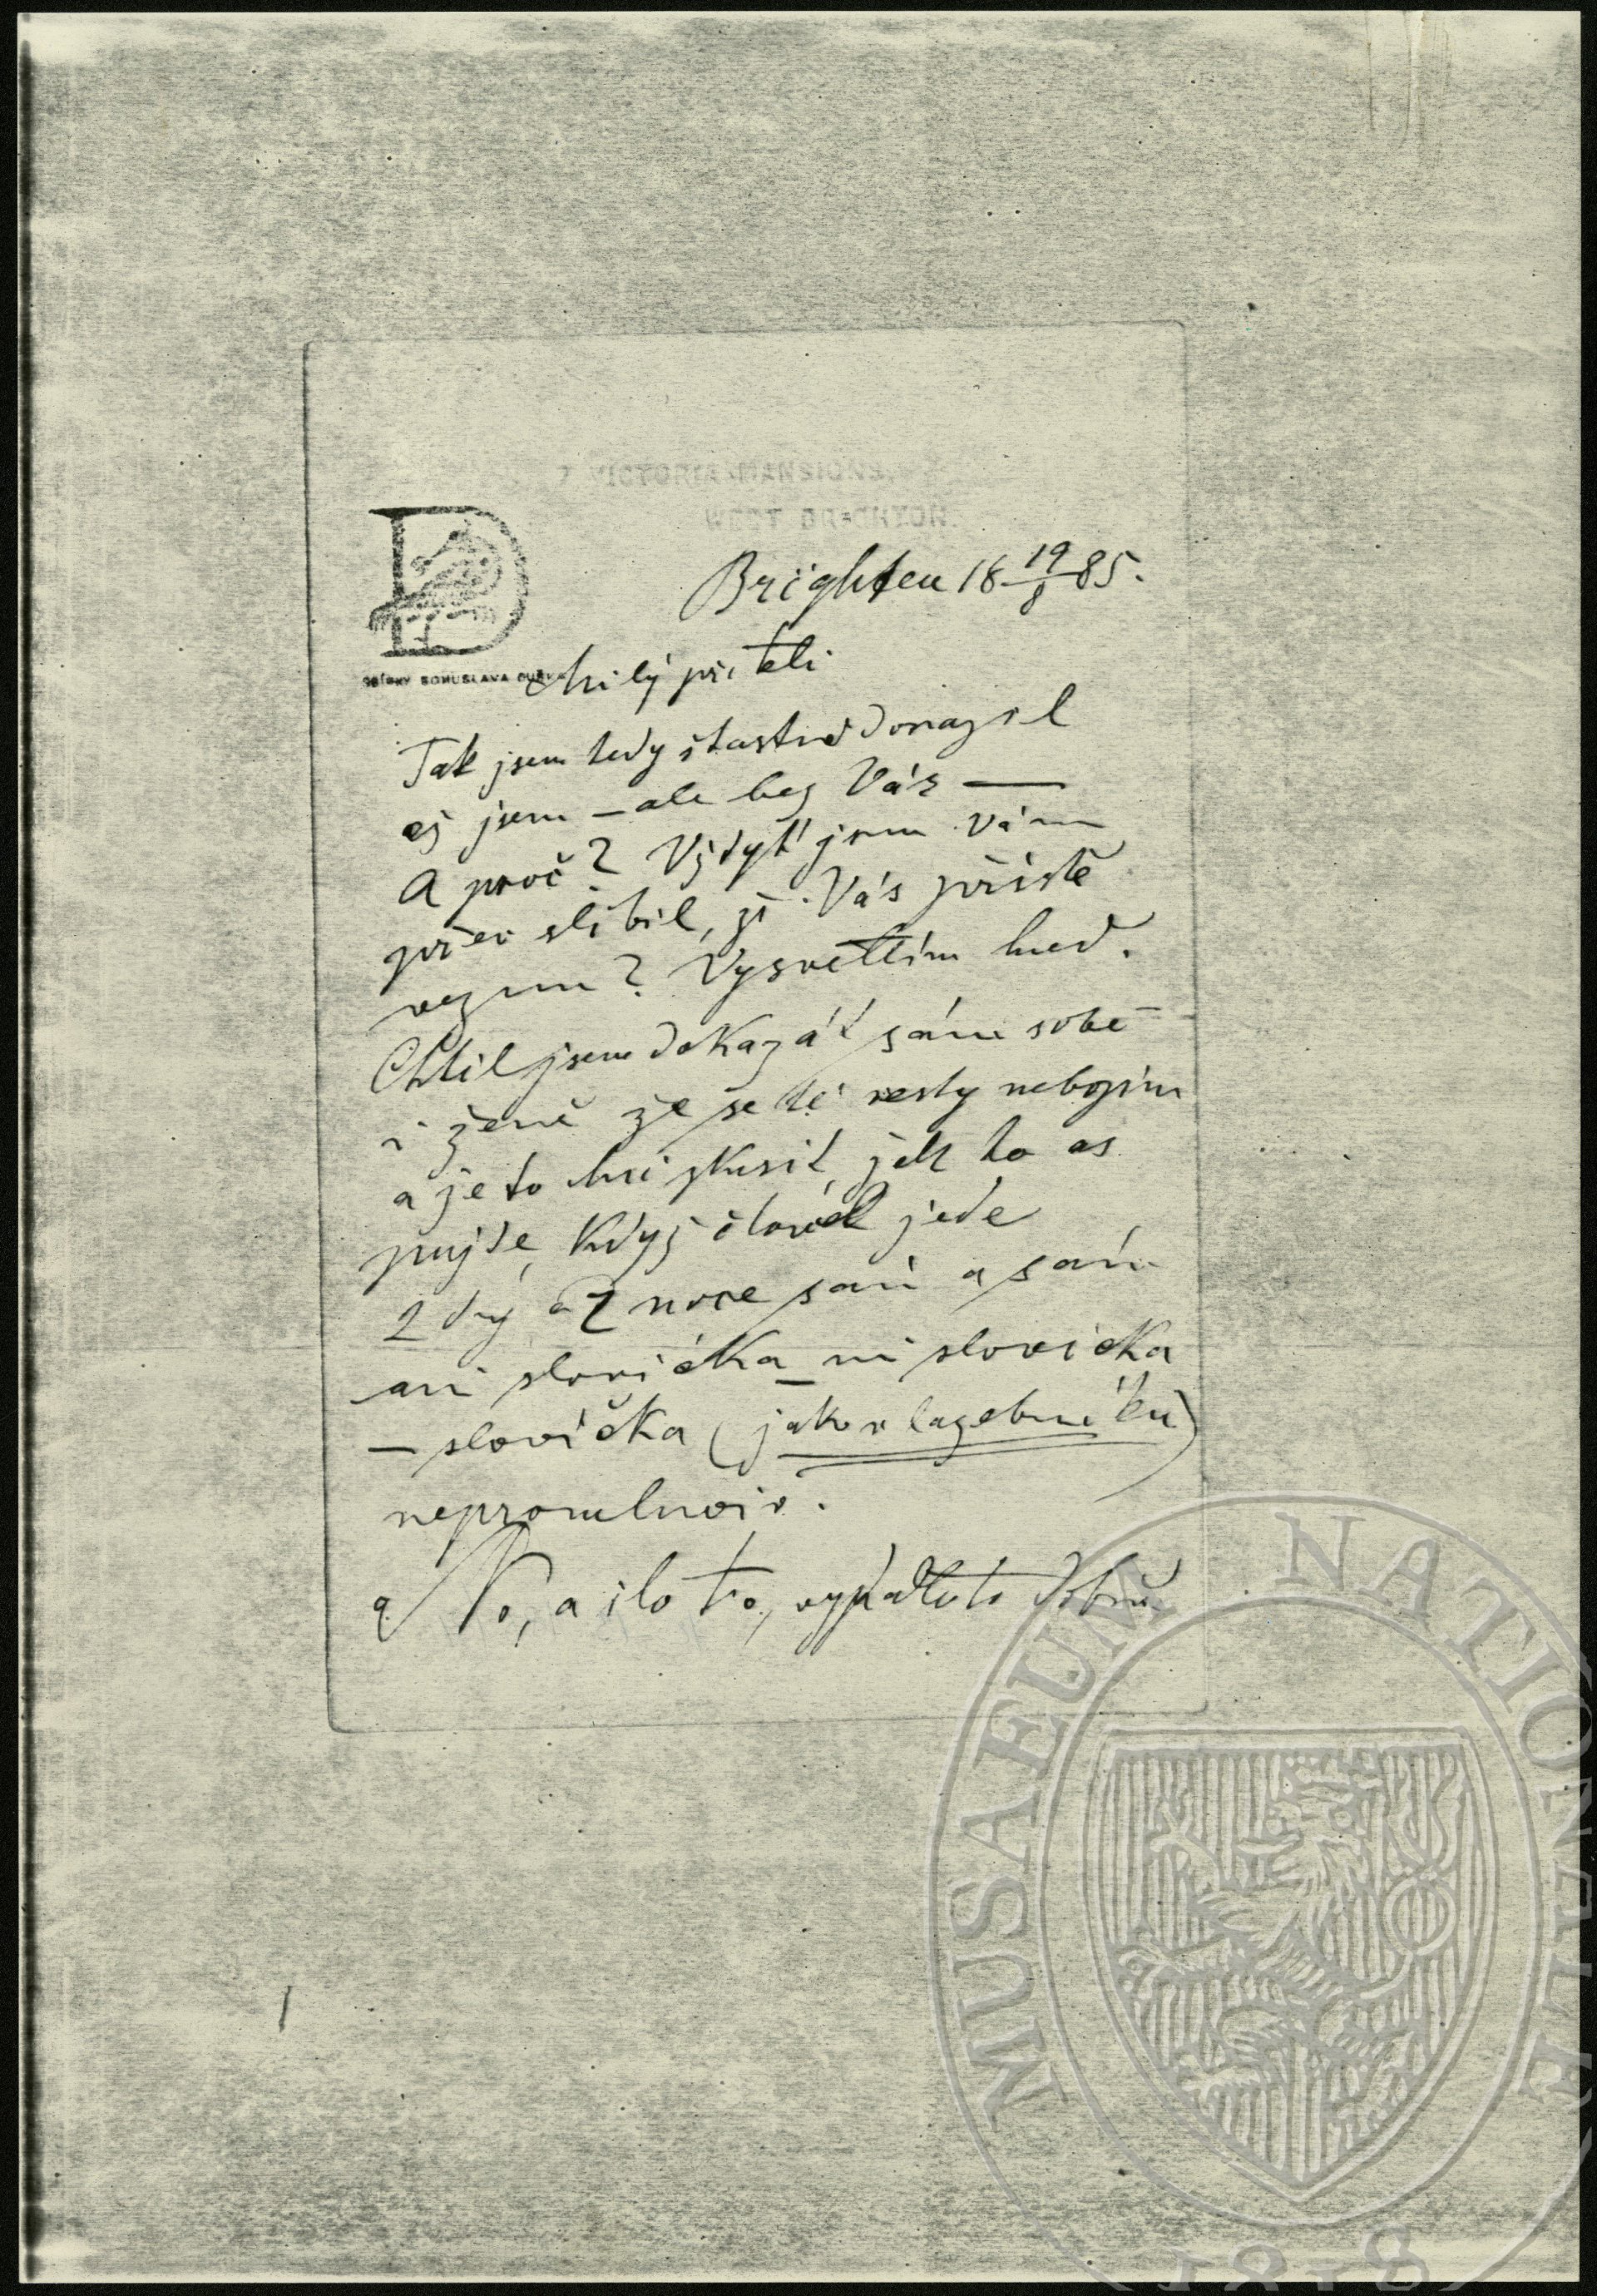 7 VICTORIA MANSIONS,
WEST BRIGHTON.
SBÍRKY BOHUSLAVA DUŠKA
Brighton 18 19/8 85.
Milý příteli
Tak jsem tedy štastně dorazil
až jsem – ale bez Vás —
A proč? Vždyť jsem Vám
přec slíbil, že Vás příště
vezmu? Vysvětlím hned.
Chtil jsem dokazát sám sobě
i ženě že se té cesty nebojim
a že to chci zkusit, jak to as
pujde, když člověk jede
2 dny a 2 noce sám a sám
ani slovička – ni slovička
– slovíčka (jako v lazebníku)
nepromluviv.
No, a šlo to, vypadlo to dobře
1
MUSAEUM NATIONALE
1818